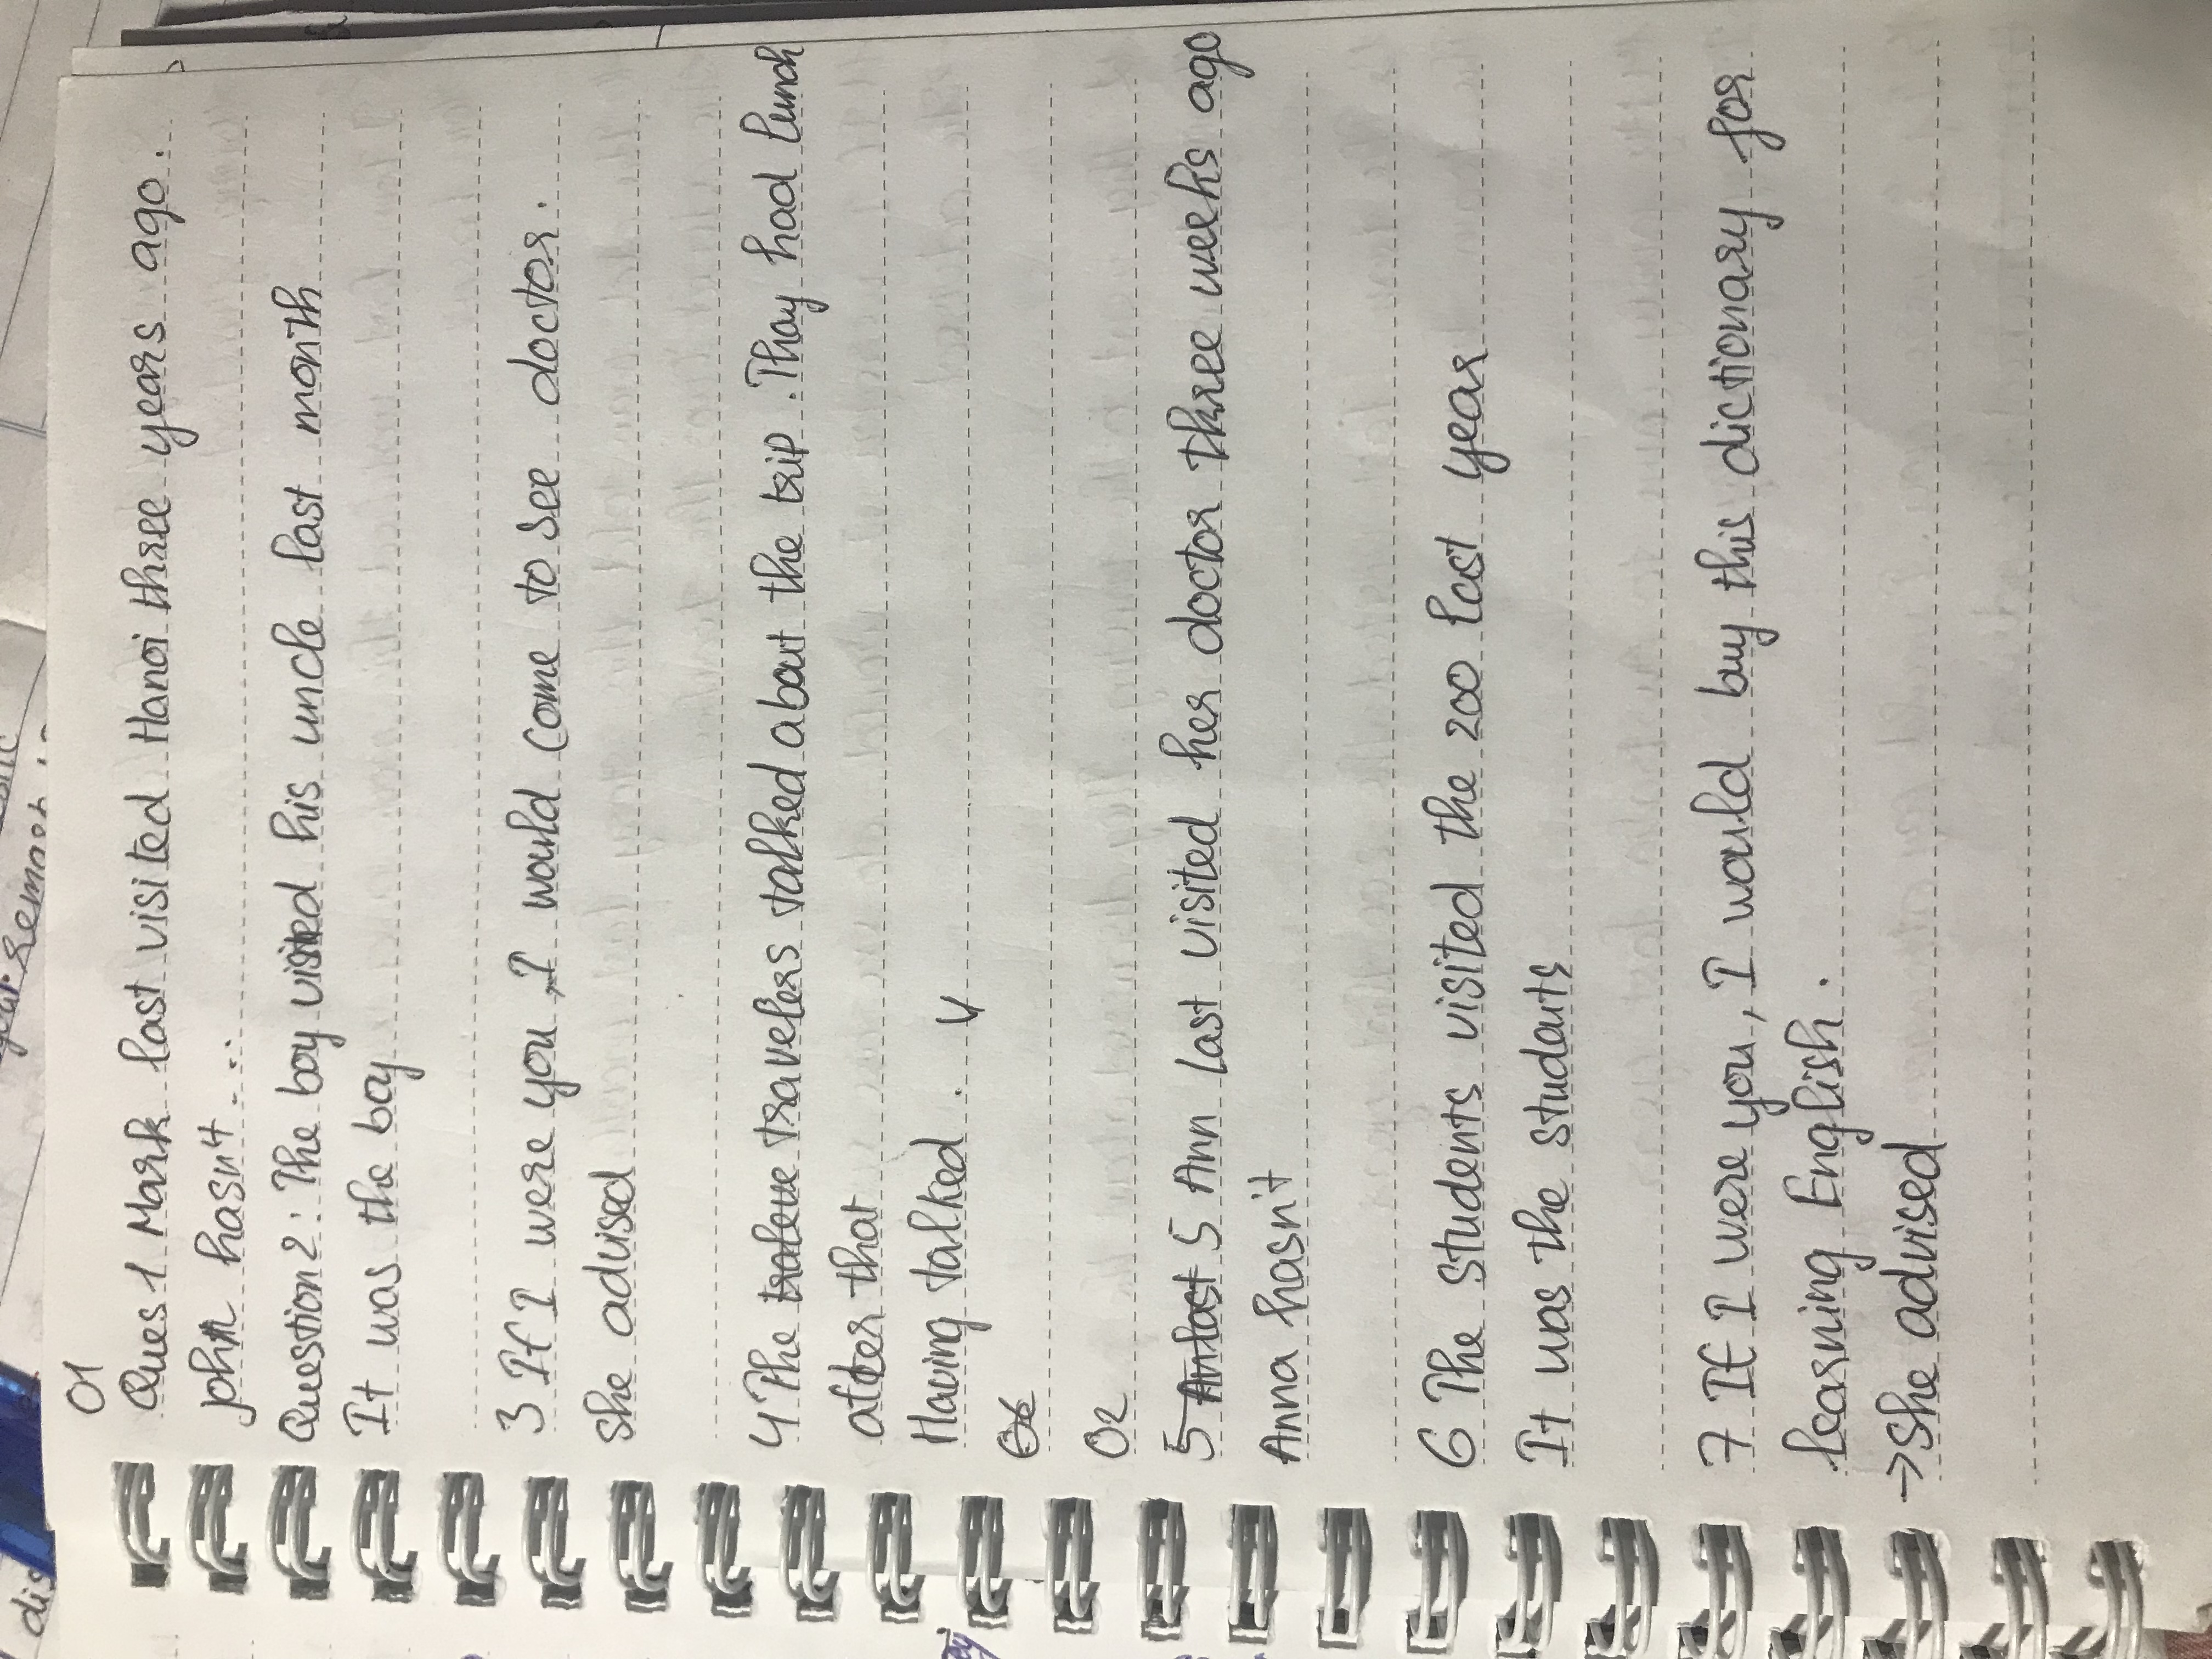 01
Ques 1 Mark last visited Hanoi three years ago.
john hasn't....
Question 2: The boy visited his uncle last month
It was the boy
3 If I were you, I would come to see doctor.
she advised
4 The travelers talked about the trip. Thay had lunch
after that
Having talked.
02
5 Ann Last visited her doctor three weeks ago
Anna hasn't
6 The students visited the zoo last year
It was the studants
7 If I were you, I would buy this dictionary for
learning English.
→ She advised